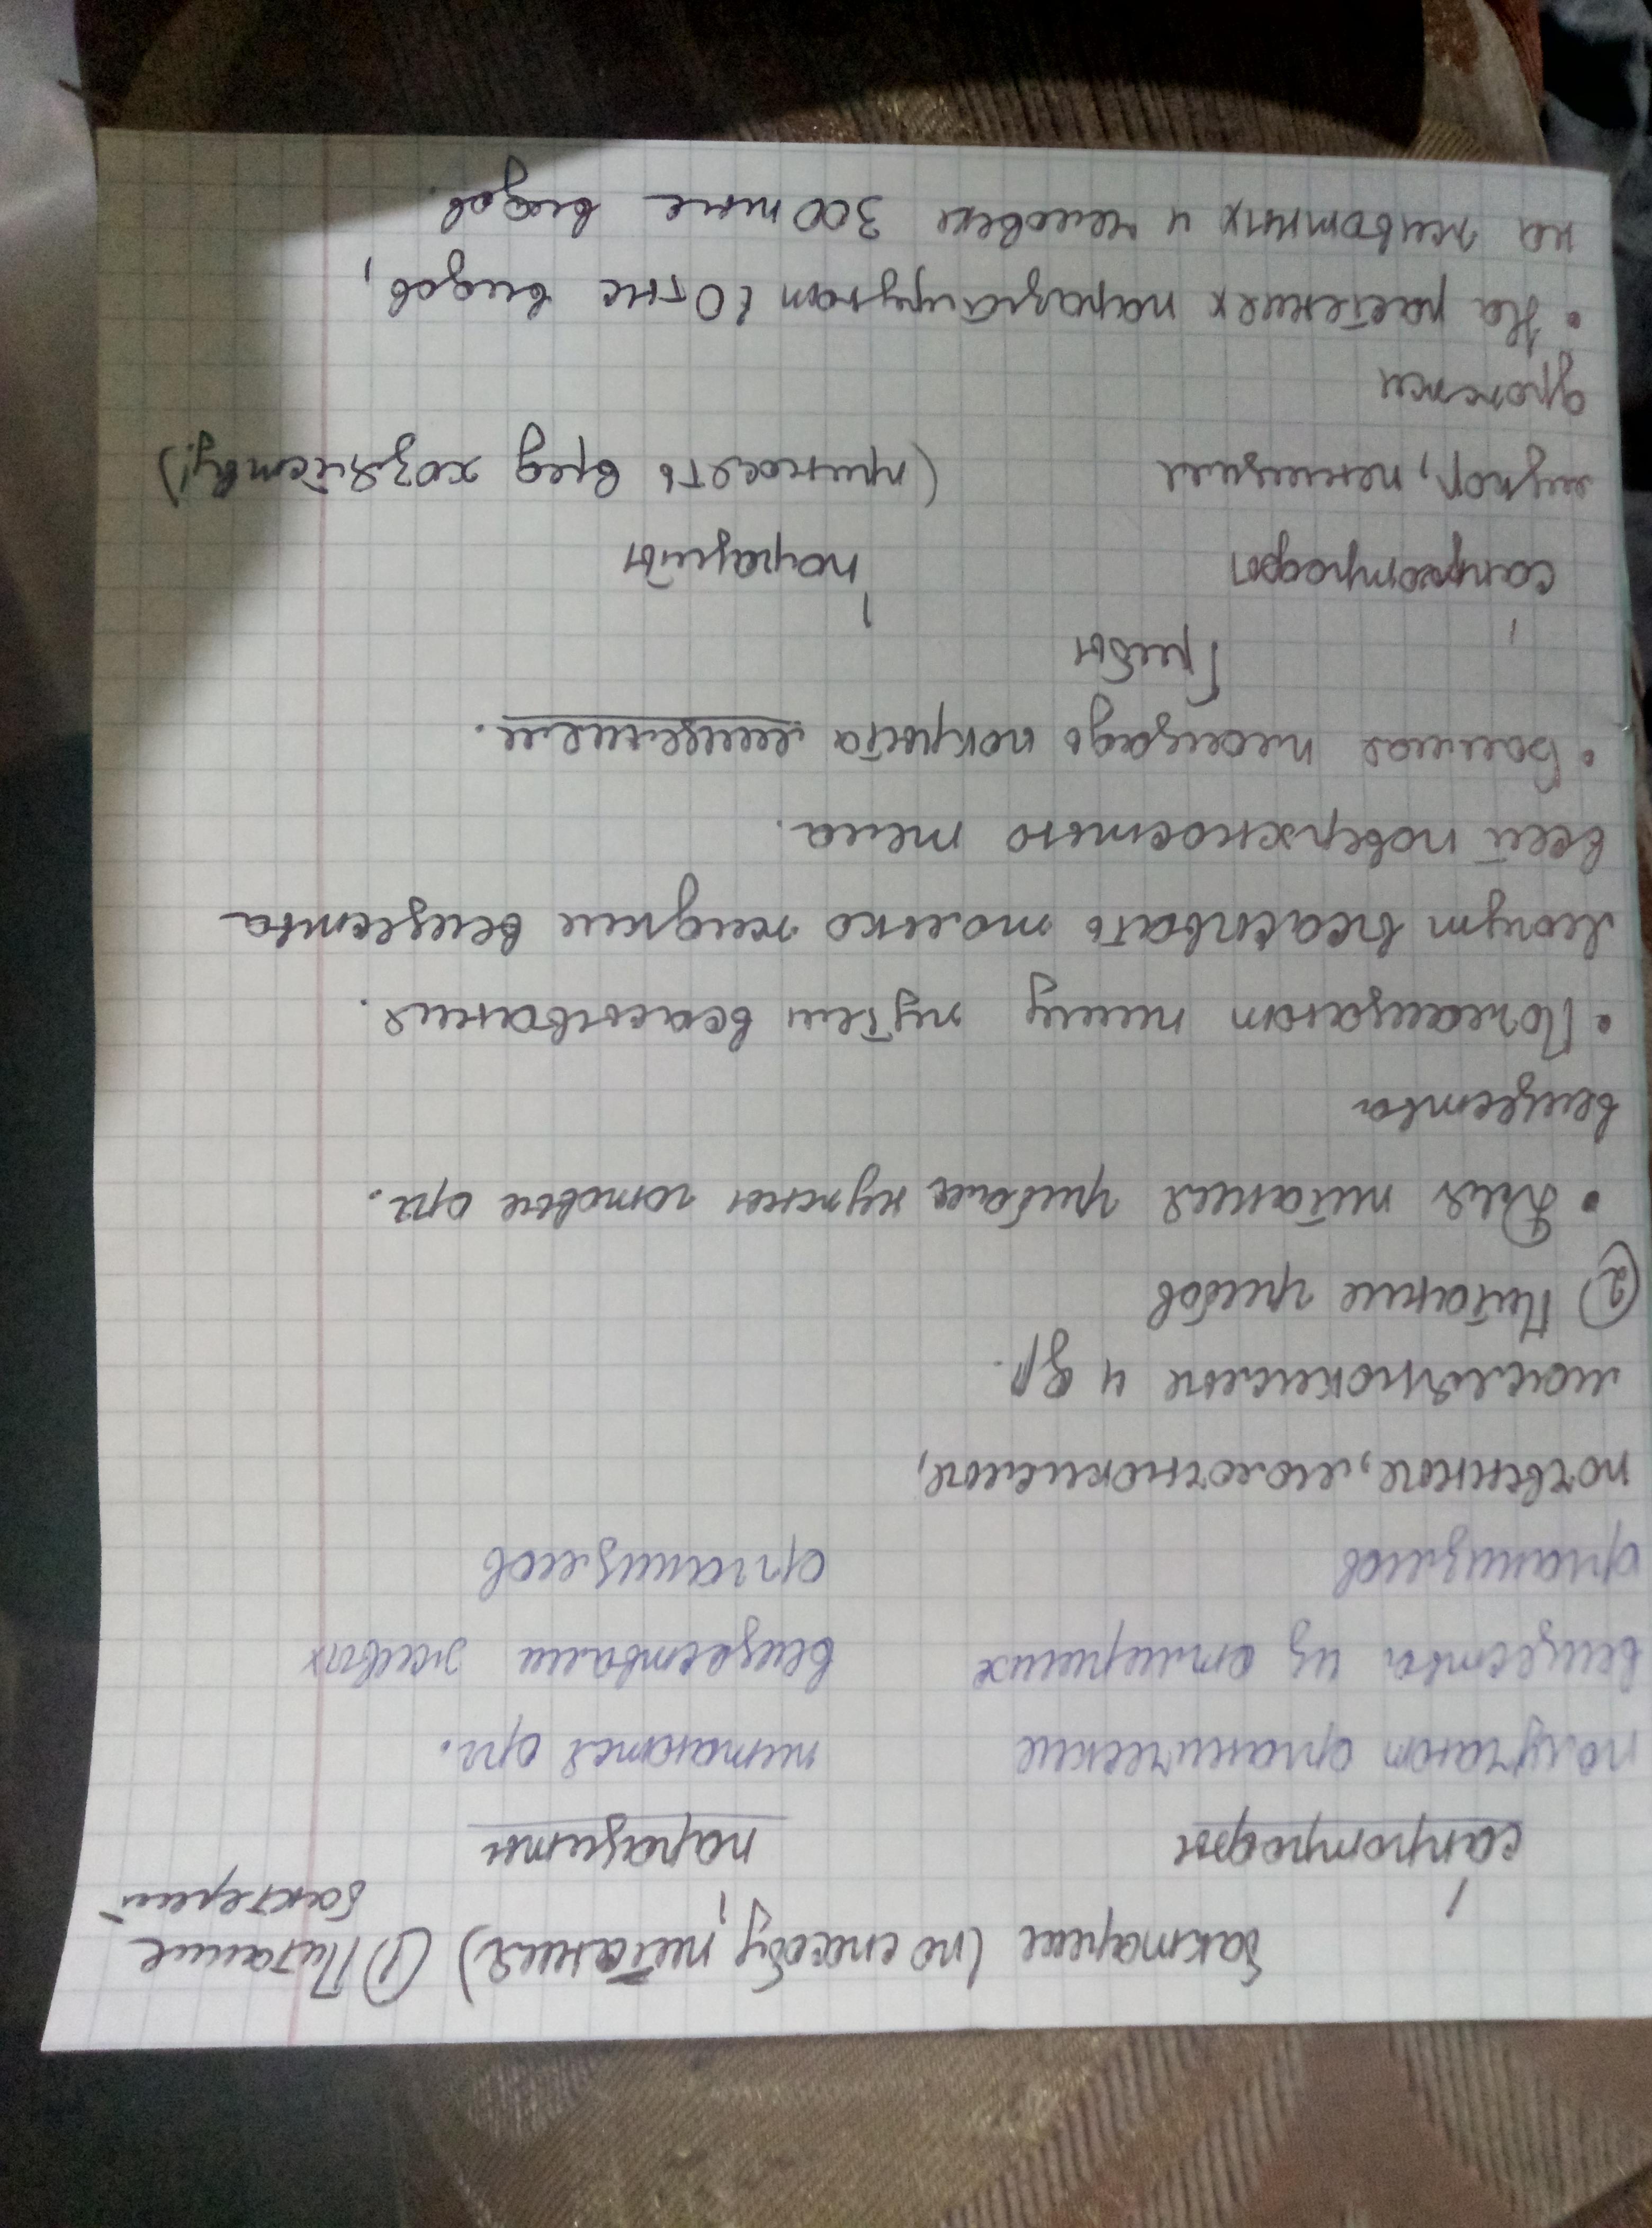 бактерии (по способу питания) ① Питание
бактерий
сапротрофы паразиты
получают органические питаются орг.
вещества из отмерших веществами живых
организмов организмов
почвенные, молочнокислые,
маслянокислые и др.
② Питание грибов
• Для питания грибам нужны готовые орг.
вещества
• Поглощают пищу путём всасывания.
Могут всасывать только жидкие вещества
всей поверхностью тела.
• Большая площадь покрыта мицелием.
Грибы
сапротрофы паразиты
мукор, пеницилл (приносять вред хозяйству!)
дрожжи
• На растениях паразитируют 10 тыс видов,
на животных и человеке 300 тыс видов.